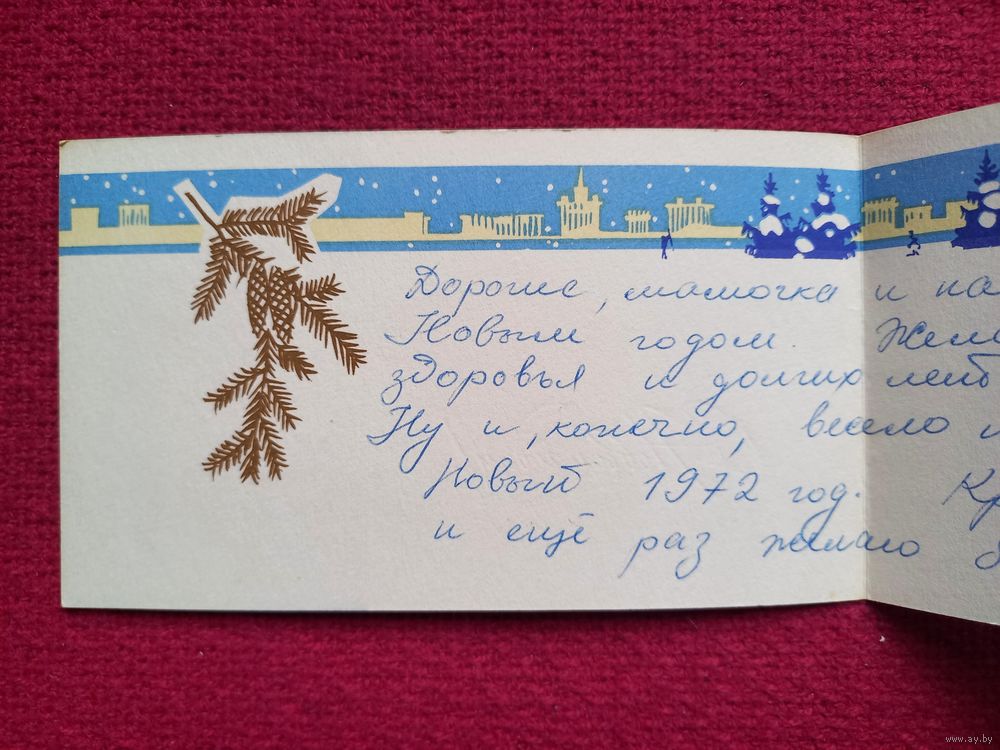 Дорогие, мамочка и па
Новым годом. Жела
здоровья и долгих лет
Ну и, конечно, весело и
Новый 1972 год. Кр
и ещё раз желаю
www.ay.by